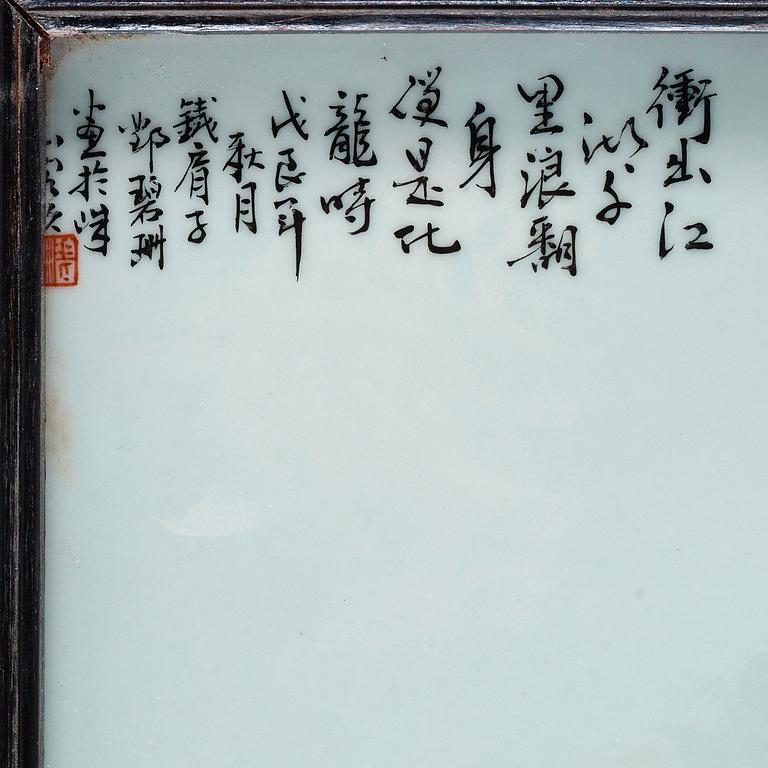 衝出江
湖千
里浪翻
身
便是化
龍時
戊辰年
秋月
鐵肩子
鄧碧珊
畫於珠
山